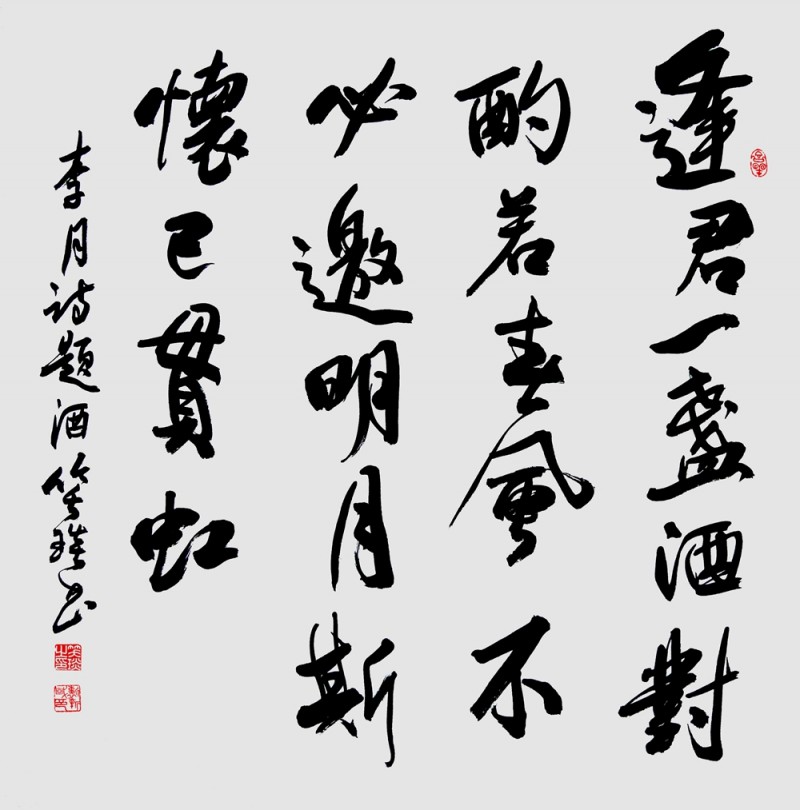 逢君一盏酒對
酌若春風不
必邀明月斯
懷已貫虹
李月诗题酒笑琰书